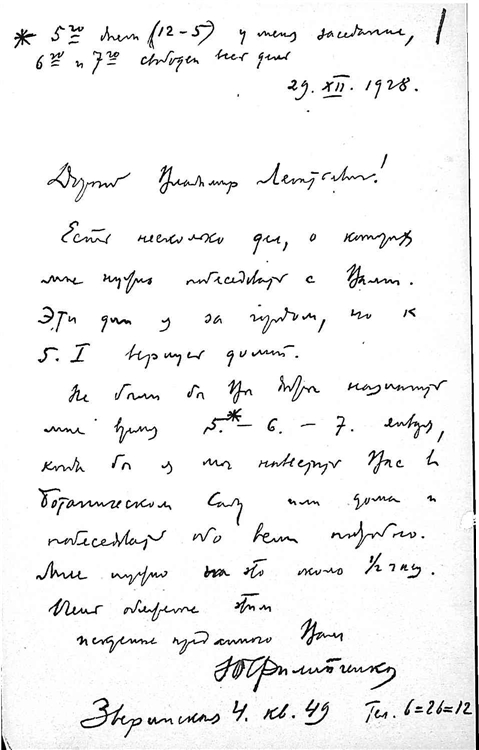 * 5го днем (12-5) у меня заседание,
6го и 7го свободен весь день
29. XII. 1928.
Дорогой Владимир Леонтьевич!
Есть несколько дел, о которых
мне нужно побеседовать с Вами.
Эти дни я за городом, но к
5. I вернусь домой.
Не были бы Вы добры назначить
мне время 5.* – 6. – 7. января,
когда бы я мог навестить Вас в
Ботаническом Саду или дома и
побеседовать обо всем подробно.
Мне нужно на это около 1/2 часа.
этим
искренне преданного Вам
ЮФилипченко
Зверинская 4. кв. 49 Тел. 6=26=12